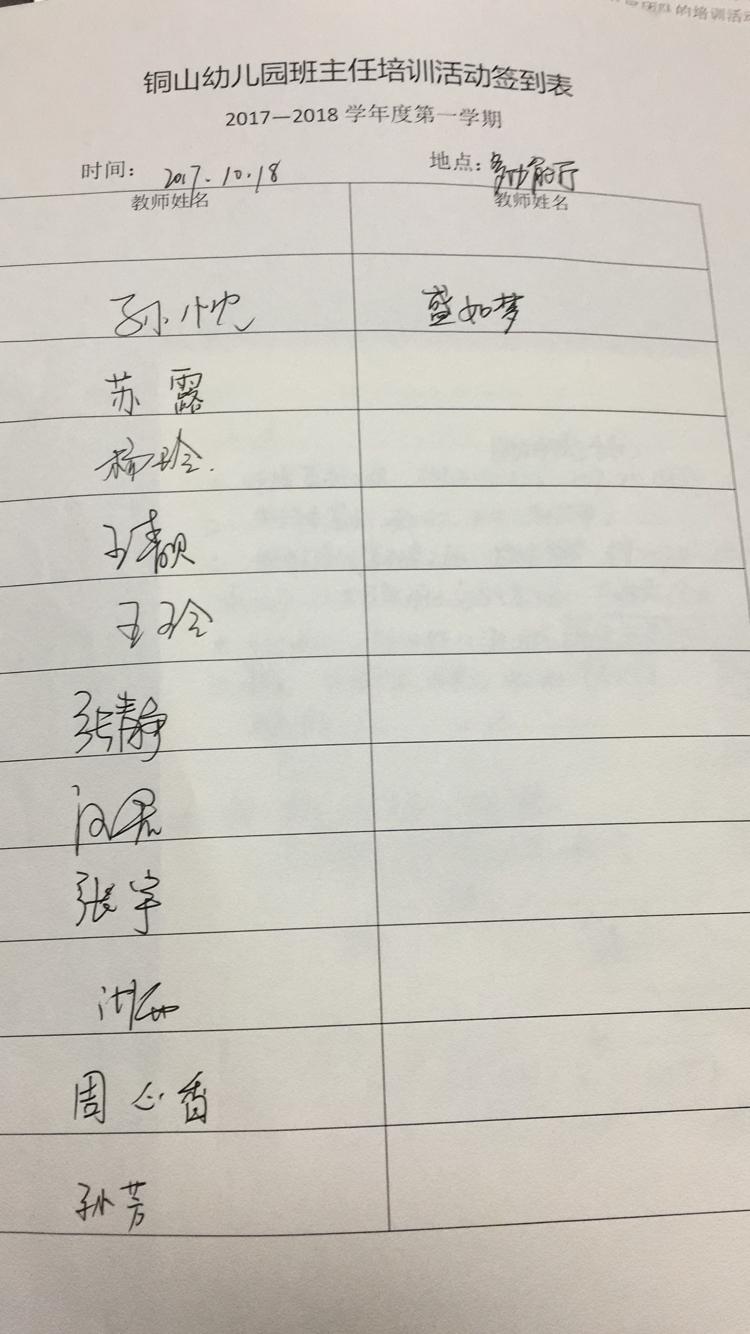 团队的培训活动
铜山幼儿园班主任培训活动签到表
2017—2018 学年度第一学期
时间： 2017.10.18 地点：
教师姓名 教师姓名
孙 盛如梦
苏露
杨玲
王靓
王玲
张静
张宇
周心香
孙芳